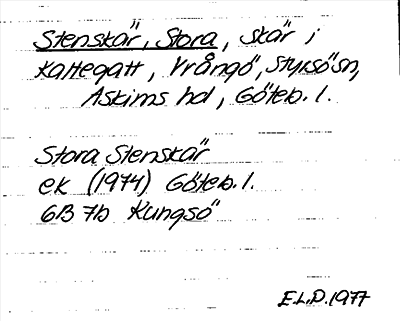 Stenskär, Stora, skär i
Kattegatt, Vrångö, Styrsö sn,
Askims hd, Göteb. l.
Stora Stenskär
ek (1974) Göteb. l.
6B 7b Kungsö
E.L.D. 1977